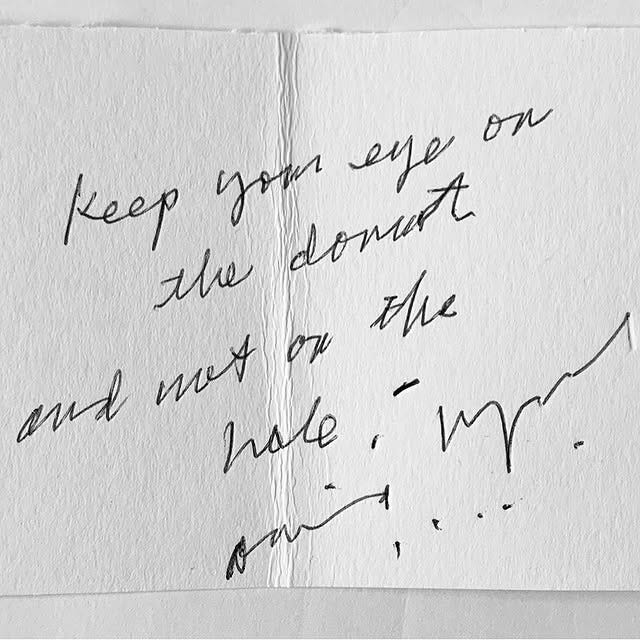 Keep your eye on
the donut
and not on the
hole.